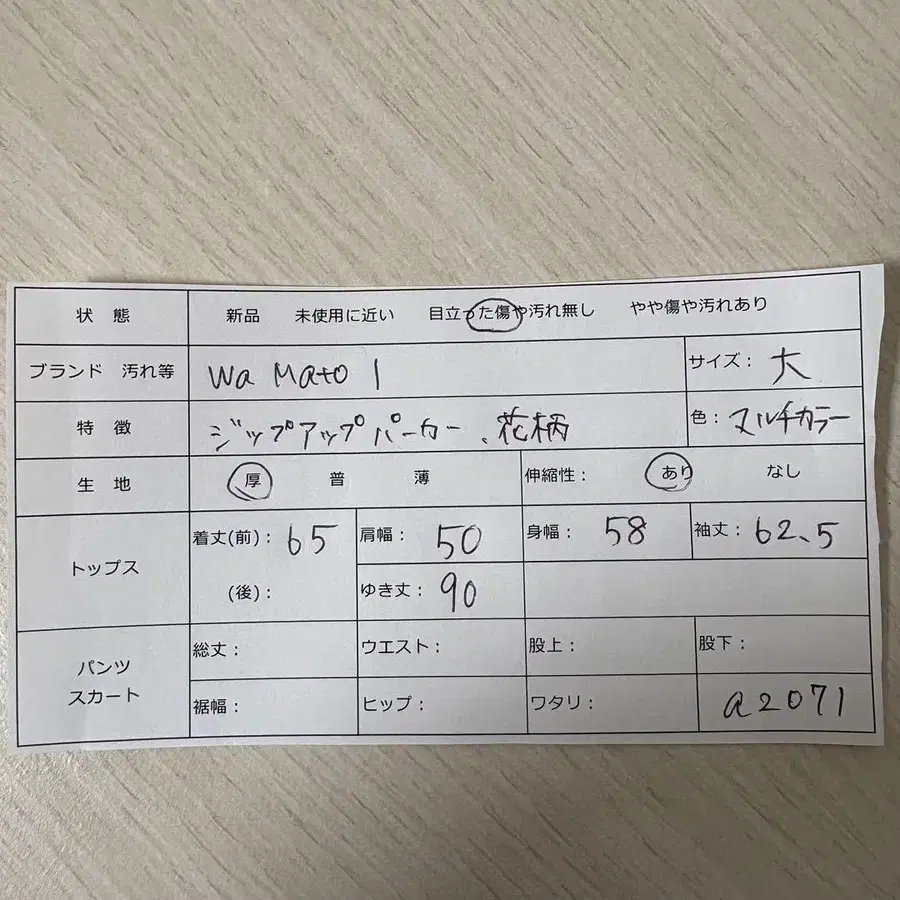 状 態 新品 未使用に近い 目立った傷や汚れ無し やや傷や汚れあり
ブランド 汚れ等 wa Mato 1 サイズ： 大
特 徴 ジップアップパーカー、花柄 色： マルチカラー
生 地 厚 普 薄 伸縮性： あり なし
トップス 着丈(前)： 65 肩幅： 50 身幅： 58 袖丈： 62.5
(後)： ゆき丈： 90
パンツ スカート 総丈： ウエスト： 股上： 股下：
裾幅： ヒップ： ワタリ： a2071